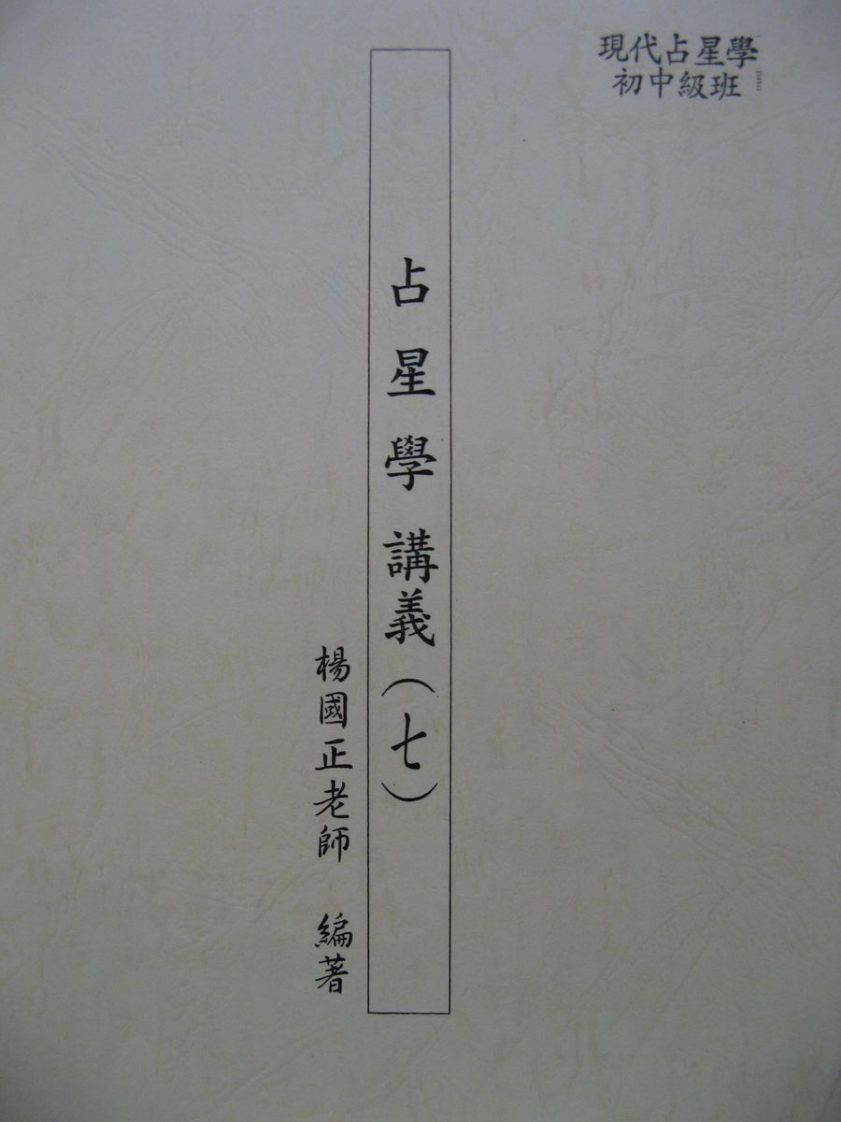 現代占星學
初中級班
占星學講義(七)
楊國正老師 編著